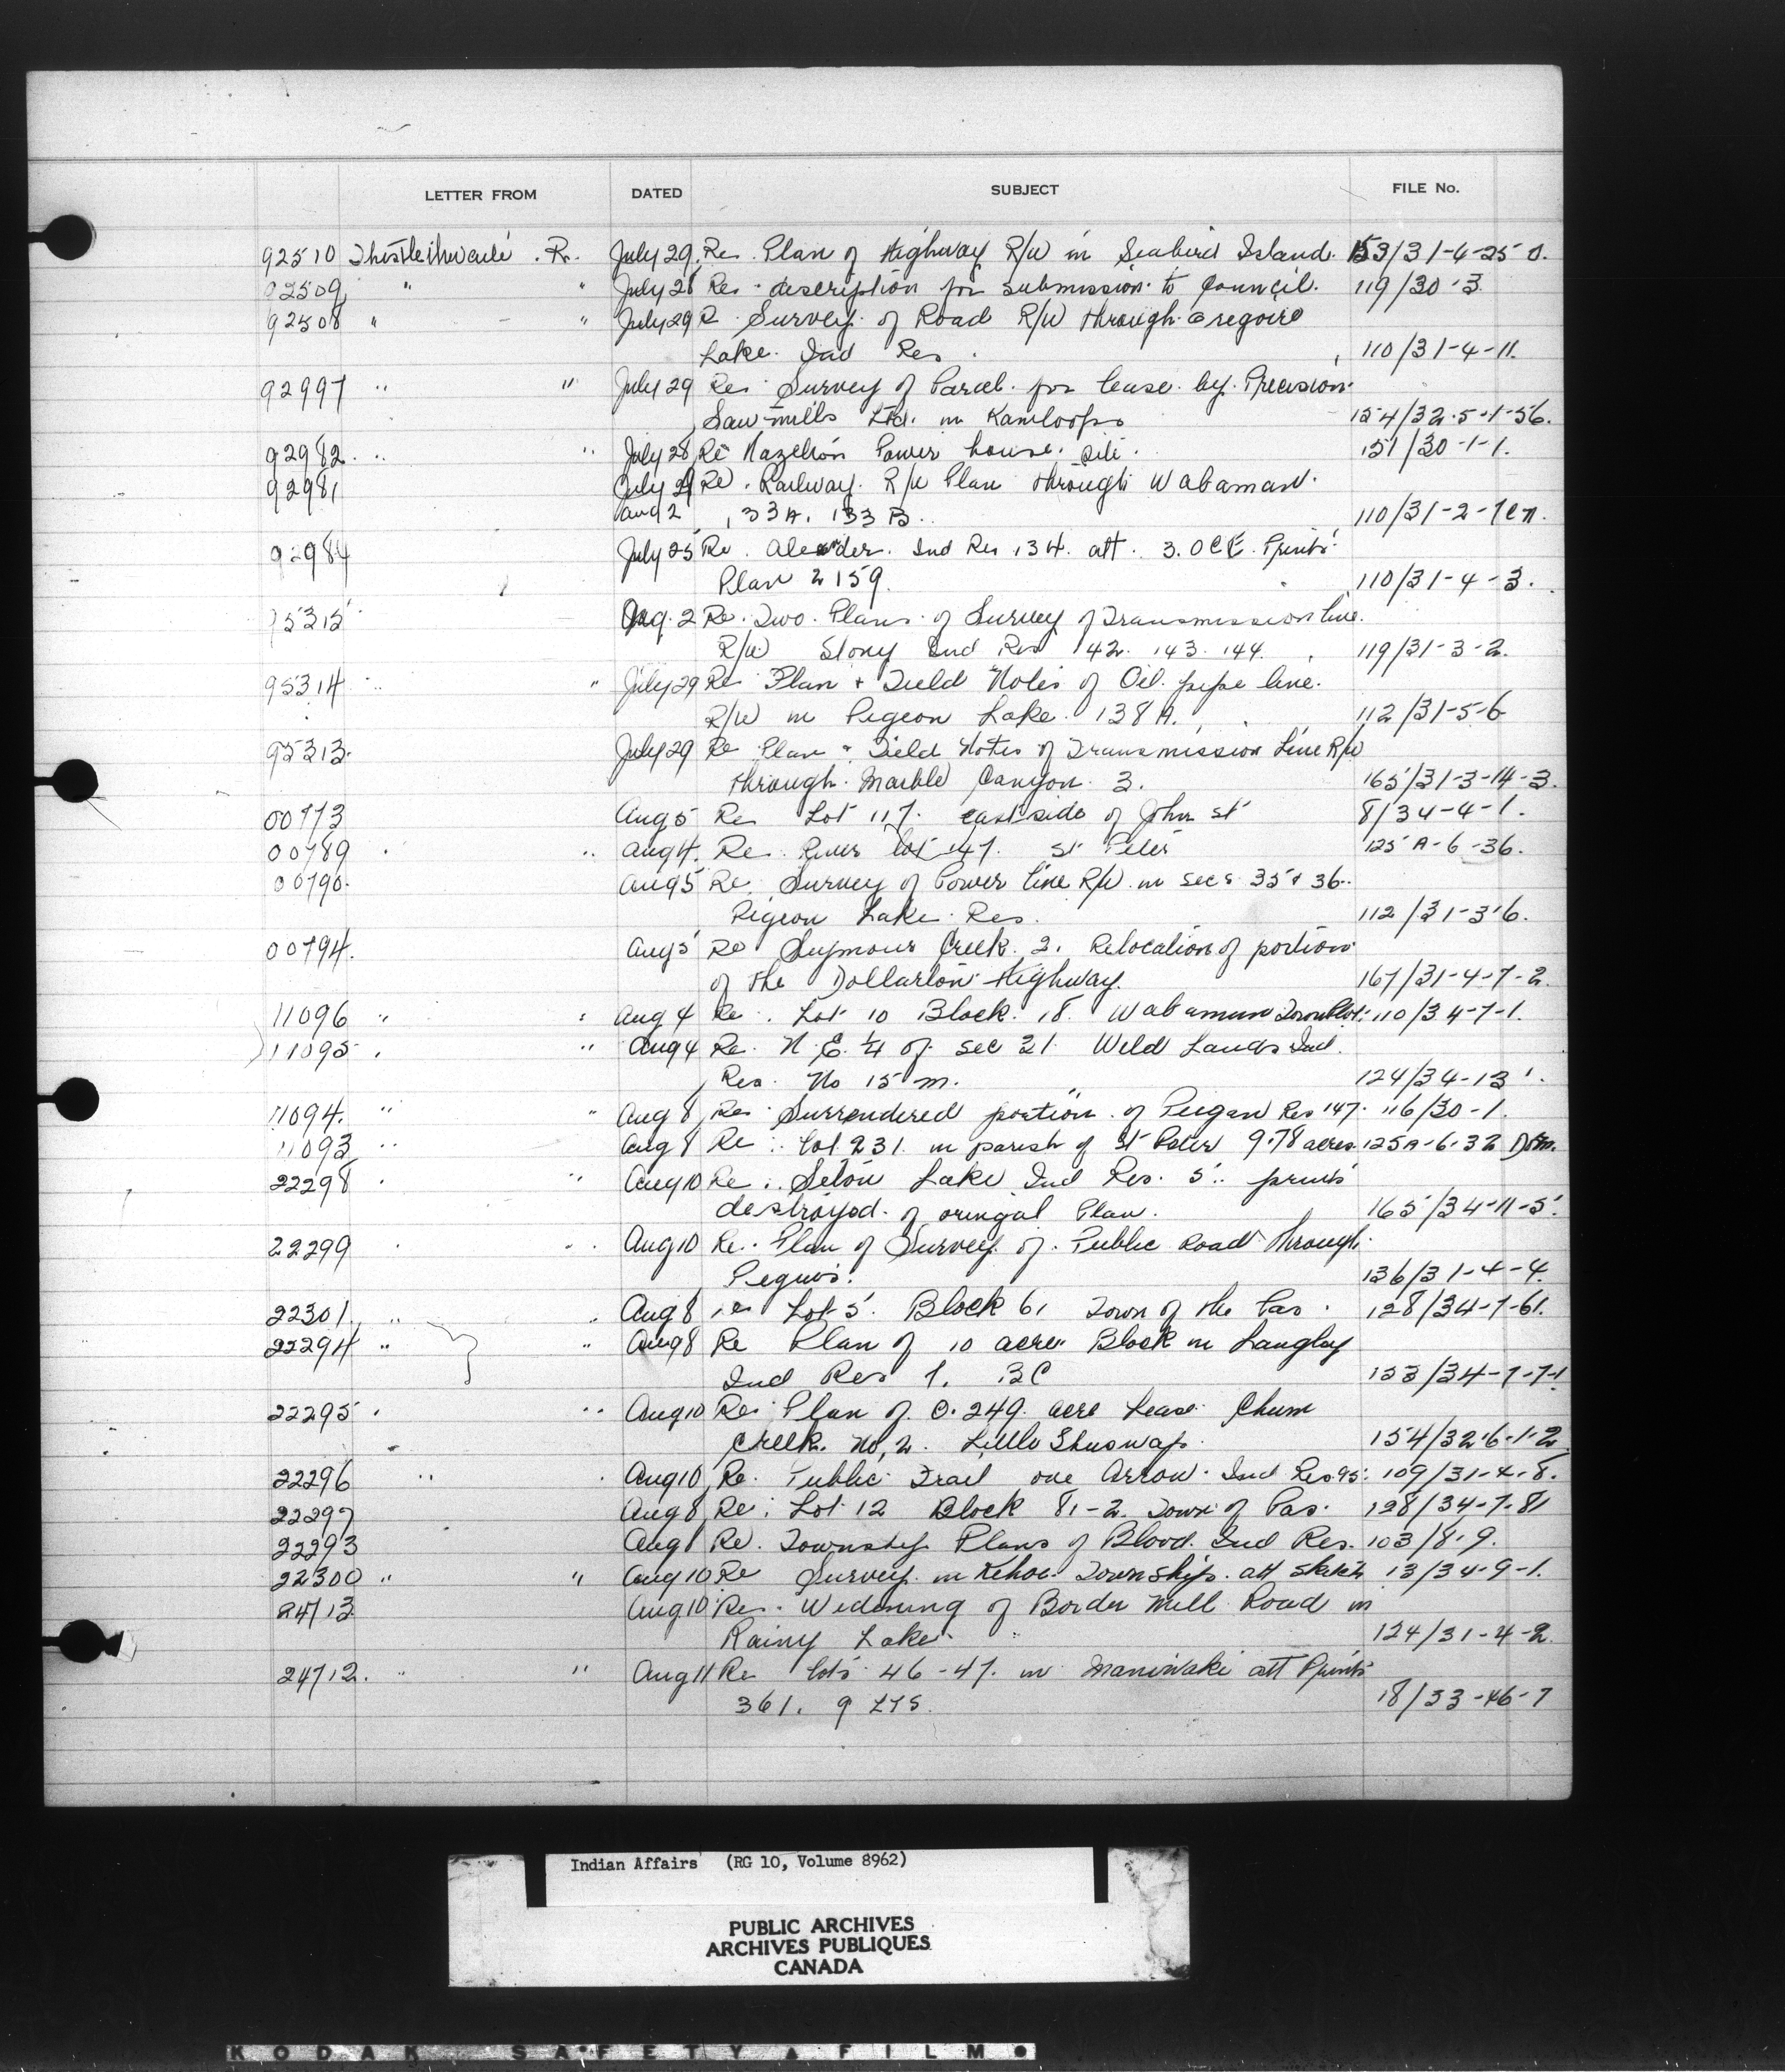 LETTER FROM DATED SUBJECT FILE No.
92510 Thistlethwaite . R. July 29. Re. Plan of Highway R/W in Seabird Island. 153/31-4-25-0.
92509 " " July 28 Re. description for submission to Council. 119/30-3
92508 " " July 29 R Survey of Road R/W through Gregoire
Lake Ind Res. 110/31-4-11.
92997 " " July 29 Re. Survey of Parcel for lease by Precision
Saw-mills Ltd. in Kamloops 154/32-5-1-56.
92982 " " July 28 Re Hazelton Power house site. 151/30-1-1.
92981 July 29 Re. Railway R/W Plan through Wabamun
Aug 2 133A. 133B. 110/31-2-7
92984 July 25 Re. Alexander. Ind Res 134. att. 3. Prints
Plan 2159. 110/31-4-3.
95315 Aug. 2 Re. Two Plans of Survey of Transmission line.
R/W Stony Ind Res 142. 143. 144. 119/31-3-2.
95314 " " July 29 Re Plan + Field Notes of Oil pipe line.
R/W in Pigeon Lake 138A. 112/31-5-6
95313. July 29 Re Plan + Field Notes of Transmission Line R/W
through Marble Canyon 3. 165/31-3-14-3.
00773 Aug 5 Re Lot 117. east side of John St 8/34-4-1.
00789 " Aug 4. Re. River lot 147. St Peter 125A-6-36.
00790. Aug 5 Re. Survey of Power line R/W in secs 35 + 36.
Pigeon Lake Res. 112/31-3-6.
00794. Aug 5 Re Seymour Creek 2. Relocation of portion
of the Dollarton Highway. 167/31-4-7-2.
11096 " " Aug 4 Re. Lot 10 Block 18 Wabamun Townplot. 110/34-7-1.
11095 " " Aug 4 Re. N.E. ¼ of sec 21 Wild Lands Ind.
Res. No 15 m. 124/34-13
11094. " " Aug 8 Re Surrendered portion of Peigan Res 147. 116/30-1.
11093 " Aug 8 Re lot 231 in parish of St Peter 9.78 acres 125A-6-32
22298 " Aug 10 Re. Seton Lake Ind Res. 5. prints
destroyed of oringal Plan. 165/34-11-5.
22299 " Aug 10 Re. Plan of Survey of Public Road through
Peguis. 136/31-4-4.
22301. " " Aug 8 re Lot 5. Block 61 Town of the Pas. 128/34-7-61.
22294 " " Aug 8 Re Plan of 10 acre Block in Langley
Ind Res 7. BC 153/34-7-7-1
22295 " Aug 10 Re Plan of 0.249 acre Lease Chum
Creek No. 2. Little Shuswap. 154/32-6-1-2
22296 " Aug 10 Re. Public Trail One Arrow Ind Res 95. 109/31-4-8.
22297 Aug 8 Re. Lot 12 Block 81-2. Town of Pas. 128/34-7-81
22293 Aug 8 Re. Township Plans of Blood Ind Res. 103/8-9.
22300 " " Aug 10 Re Survey in Kehoe Township att sketch 13/34-9-1.
24713 Aug 10 Re. Widening of Border Mill Road in
Rainy Lake. 124/31-4-2.
24712. " " Aug 11 Re lots 46-47. in Maniwaki att Prints
361. 9 LTS. 18/33-46-7
Indian Affairs (RG 10, Volume 8962)
PUBLIC ARCHIVES
ARCHIVES PUBLIQUES
CANADA
KODAK SAFETY ▲ FILM ●